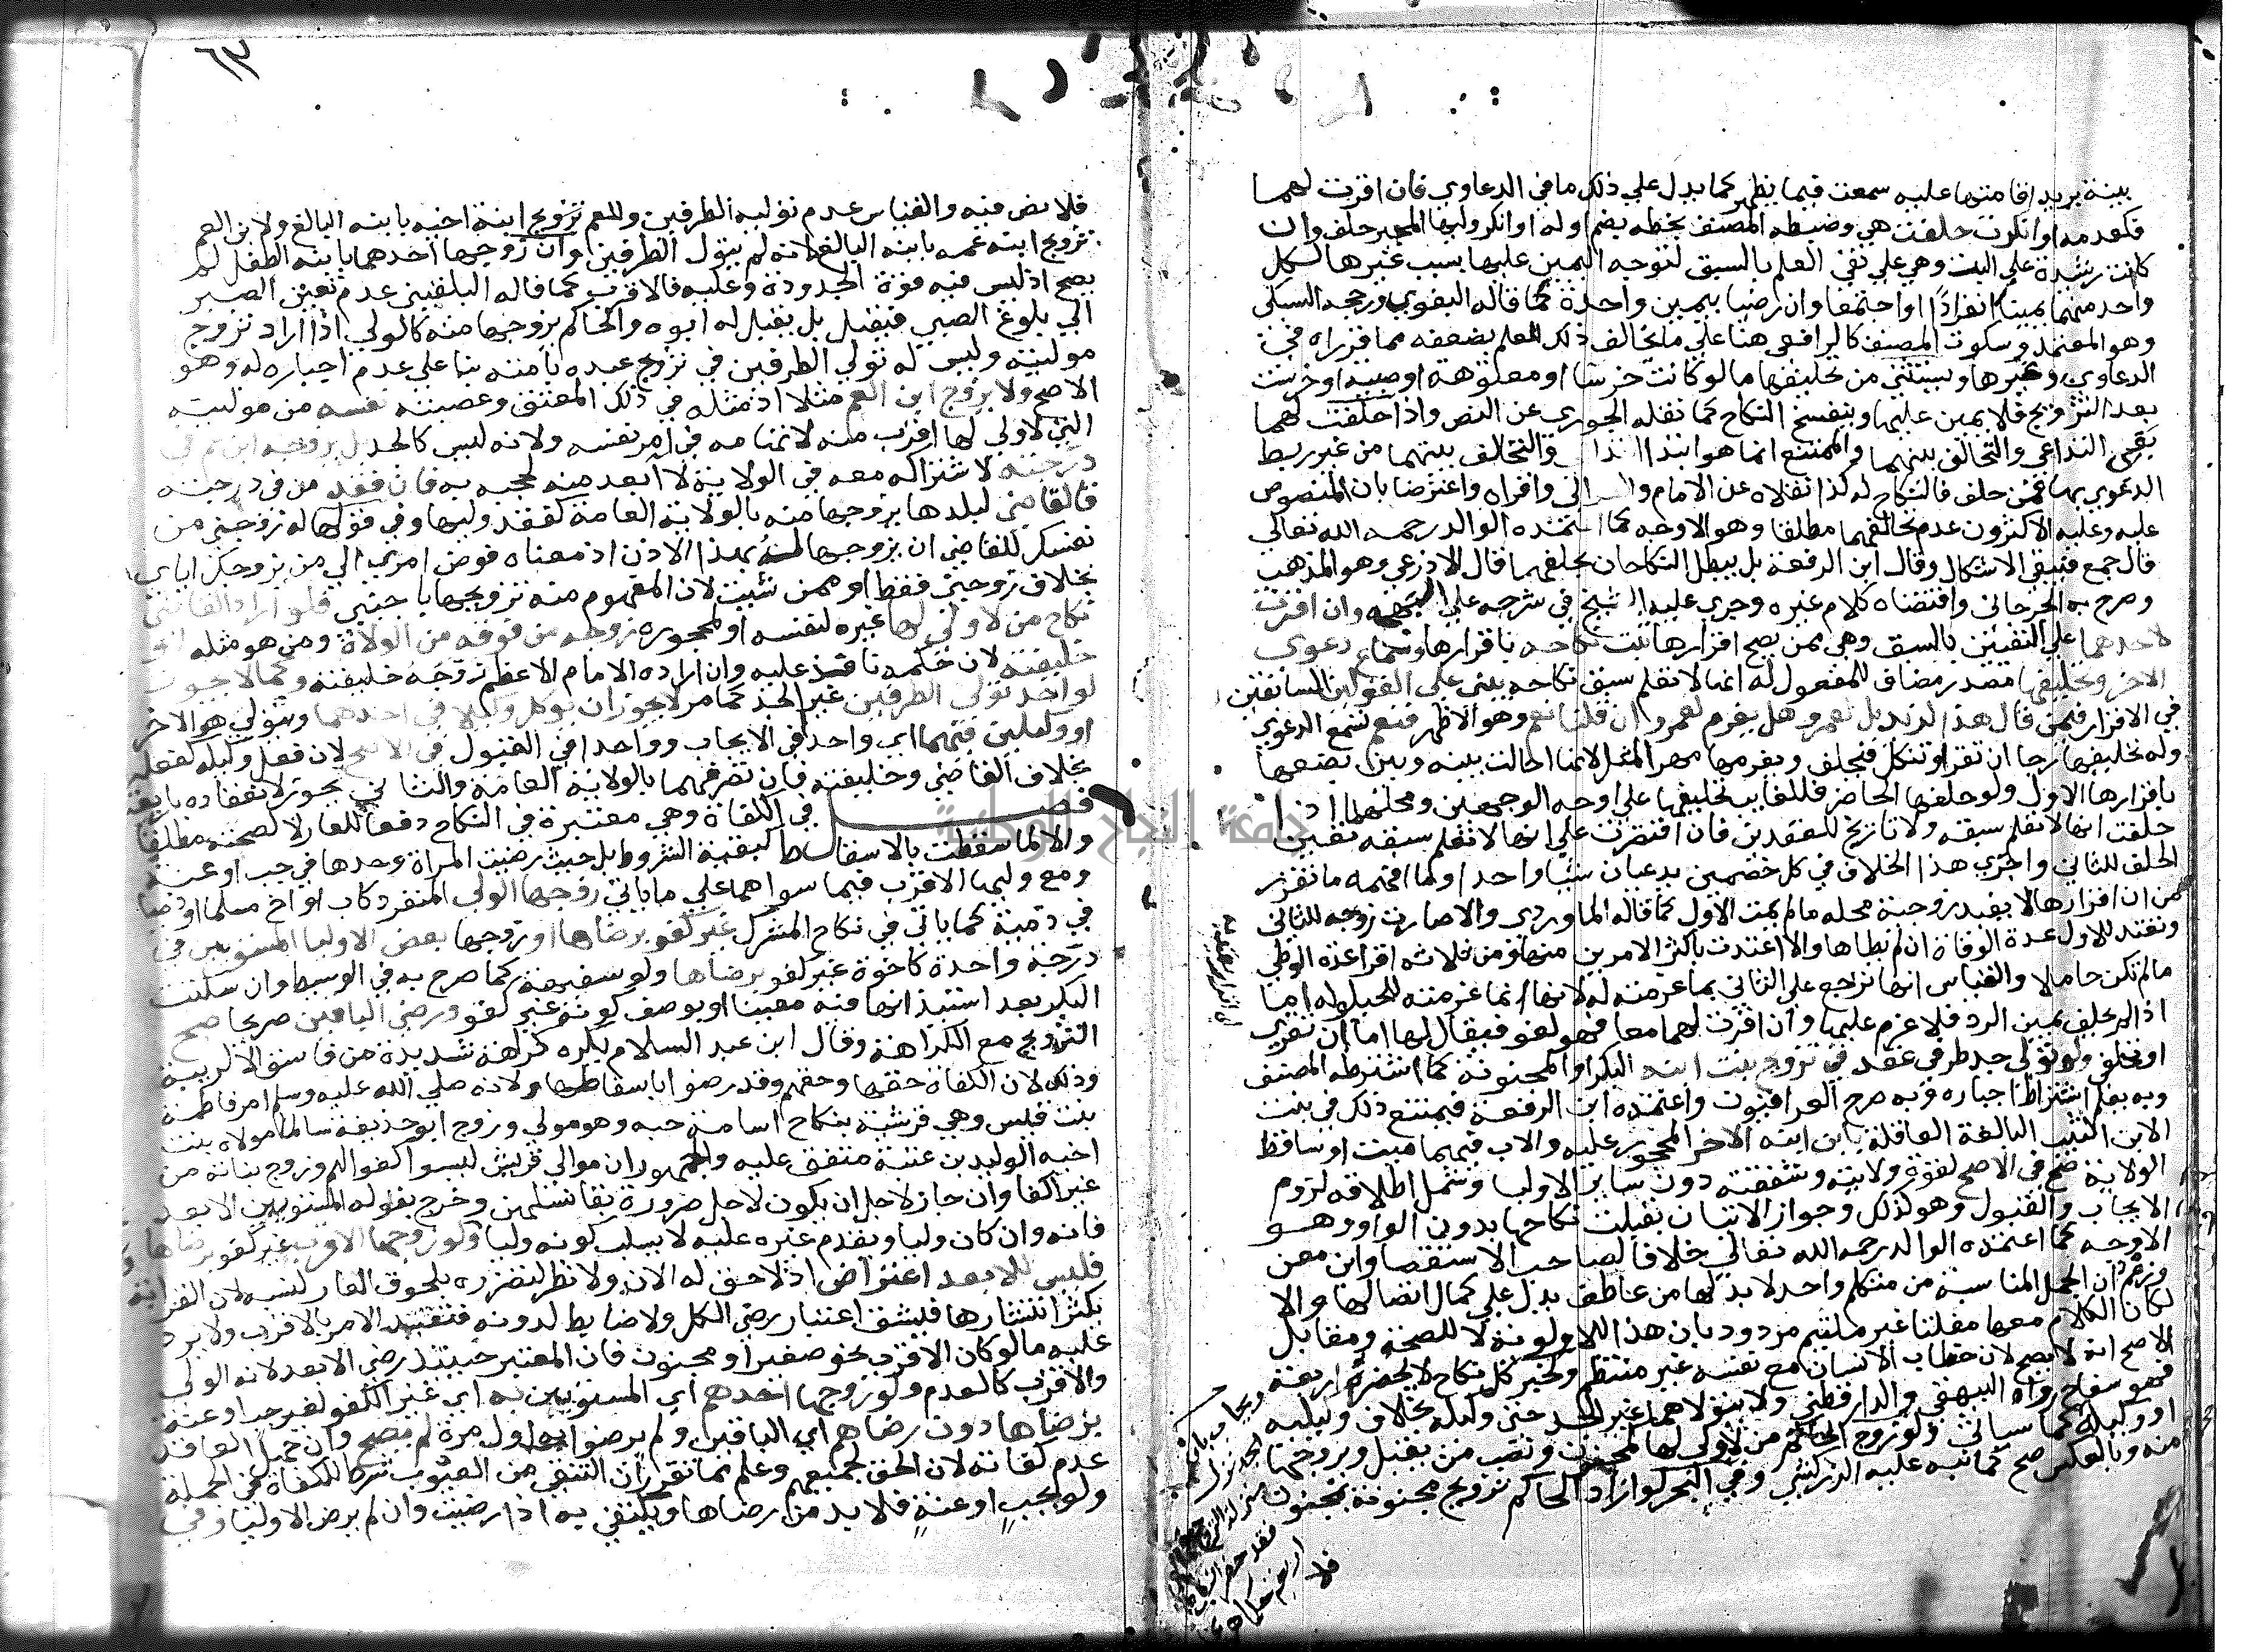 بينة يريد اقامتها عليه سمعت فيما يظهر كما يدل علي ذلك ما في الدعاوي فان اقرت لهما
فكعدمه او انكرت حلفت هي وضبطه المصنف بخطه بضم اوله او انكر وليها المجبر حلف وان
كانت رشيدة علي البت وهي علي نفي العلم بالسبق لتوجه اليمين عليها بسبب غيرها لكل
واحد منهما يمينا انفرادا او اجتمعا وان رضيا بيمين واحدة كما قاله البغوي ورجحه السبكي
وهو المعتمد وسكوت المصنف كالرافعي هنا علي ما يخالف ذلك للعلم بضعفه مما قرراه في
الدعاوي وغيرها ويستثني من تحليفها ما لو كانت خرسا او معتوهة او صبية او خرست
بعد التزويج فلا يمين عليها وينفسخ النكاح كما نقله الجوري عن النص واذا حلفت لهما
بقي التداعي والتحالف بينهما والممتنع انما هو ابتدا التداعي والتحالف بينهما من غير ربط
الدعوي بها فمن حلف فالنكاح له كذا نقلاه عن الامام والغزالي واقراه واعترضا بان المنصوص
عليه وعليه الاكثرون عدم تحالفهما مطلقا وهو الاوجه كما اعتمده الوالد رحمه الله تعالي
قال جمع فتبقي الاشكال وقال ابن الرفعة بل يبطل النكاحان بحلفهما قال الاذرعي وهو المذهب
وصرح به الجرجاني واقتضاه كلام غيره وجري عليه الشيخ في شرحه علي البهجة وان اقرت
لاحدهما علي التعيين بالسبق وهي ممن يصح اقرارها ثبت نكاحه باقرارها وسماع دعوي
الاخر وتحليفها مصدر مضاف للمفعول له انها لا تعلم سبق نكاحه يبني علي القولين السابقين
في الاقرار فيمن قال هذا لزيد بل لعمرو هل يغرم لعمرو ان قلنا نعم وهو الاظهر فنعم تسمع الدعوي
وله تحليفها رجا ان تقر او تنكل فيحلف ويغرمها مهر المثل لانها احالت بينه وبين بضعها
باقرارها الاول ولو حلفها الحاضر فللغايب تحليفها علي اوجه الوجهين ومحلهما اذا
حلفت انها لا تعلم سبقه ولا تاريخ للعقدين فان اقتصرت علي انها لا تعلم سبقه تعين
الحلف للثاني واجري هذا الخلاف في كل خصمين يدعيان شيا واحدا ولما افهمه ما تقرر
من ان اقرارها لا يفيد زوجية محله ما لم يمت الاول كما قاله الماوردي والا صارت زوجه للثاني
وتعتد للاول عدة الوفاة ان لم يطاها والا اعتدت باكثر الامرين منها ومن ثلاثه اقرا عدة الوطي
ما لم تكن حاملا والقياس انها ترجع علي الثاني بما غرمته له لانها انما غرمته للحيلوله اما
اذا لم يحلف يمين الرد فلا غرم عليها وان اقرت لهما معا فهو لغو فيقال لها اما ان تقري
او تحلفي ولو تولي جد طرفي عقد في تزويج بنت ابنه البكر او المجنونة كما اشترطه المصنف
وبه يعلم اشتراط اجباره وبه صرح العراقيون واعتمده ابن الرفعة فيمتنع ذلك في بنت
الابن الثيب البالغة العاقلة بابن ابنه الاخر المحجور عليه والاب فيهما ميت او ساقط
الولاية صح في الاصح لقوة ولايته وشفقته دون ساير الاوليا وشمل اطلاقه لزوم
الايجاب والقبول وهو كذلك وجواز الاتيان بقبلت نكاحها بدون الواو وهو
الاوجه كما اعتمده الوالد رحمه الله تعالي خلافا لصاحب الاستقصا وابن معن
وزعم ان الجمل المناسبة من متكلم واحد لا بد لها من عاطف يدل علي كمال اتصالها والا
لكان الكلام معها مفلتا غير ملتيم مردود بان هذا للاولوية لا للصحة ومقابل
الاصح انه لا يصح لان خطاب الانسان مع نفسه غير منتظم ولخبر كل نكاح لا يحضره اربعة
فهو سفاح رواه البيهقي والدارقطني ولا يتولاهما غير الجد حتي وكيله بخلاف وكيليه
او وكيله كما سياتي ولو زوج الحاكم من لا ولي لها لمجنون ونصب من يقبل ويزوجها
منه وبالعكس صح كما نبه عليه الزركشي وفي البحر لو اراد الحاكم تزويج مجنونة بمجنون
فلا
٦٣
فلا نص فيه والقياس عدم توليه الطرفين وللعم تزويج ابنة اخيه بابنه البالغ ولابن العم
تزويج ابنه عمه بابنه البالغ لانه لم يتول الطرفين وان زوجها احدهما بابنه الطفل لم
يصح اذ ليس فيه قوة الجدودة وعليه فالاقرب كما قاله البلقيني عدم تعين الصبر
الي بلوغ الصبي فيقبل بل يقبل له ابوه والحاكم يزوجها منه كالولي اذا اراد تزوج
موليته وليس له تولي الطرفين في تزويج عبده بامته بنا علي عدم اجباره له وهو
الاصح ولا يزوج ابن العم مثلا اذ مثله في ذلك المعتق وعصبته نفسه من موليته
التي لا ولي لها اقرب منه لاتهامه في امر نفسه ولانه ليس كالجد بل يزوجه ابن عم في
درجته لاشتراكه معه في الولاية لا ابعد منه لحجبه به فان فقد من في درجته
فالقاضي لبلدها يزوجها منه بالولاية العامة كفقد وليها وفي قولها له زوجني من
نفسك للقاضي ان يزوجها له بهذا الاذن اذ معناه فوض امري الي من يزوجك اياي
بخلاف زوجني فقط او ممن شيت لان المفهوم منه تزويجها باجنبي فلو اراد القاضي
نكاح من لا ولي لها غيره لنفسه او لمحجوره زوجه من فوقه من الولاة ومن هو مثله او
خليفته لان حكمه نافذ عليه وان اراده الامام الاعظم زوجه خليفته وكما لا يجوز
لواحد تولي الطرفين غير الجد كما مر لا يجوز ان يوكل وكيلا في احدهما ويتولي هو الاخر
او وكيلين فيهما اي واحد في الايجاب وواحدا في القبول في الاصح لان فعل وكيله كفعله
بخلاف القاضي وخليفته فان تصرفهما بالولاية العامة والثاني يجوز لانعقاده باربعة
فصل في الكفاة وهي معتبرة في النكاح دفعا للعار لا لصحته مطلقا
والا لما سقطت بالاسقاط كبقية الشروط بل حيث رضيت المراة وحدها في جب او عنة
ومع وليها الاقرب فيما سواهما علي ما ياتي زوجها الولي المنفرد كاب او اخ مسلما او ذميا
في ذمية كما ياتي في نكاح المشرك غير كفو برضاها او زوجها بعض الاوليا المستويين في
درجة واحدة كاخوة غير كفو برضاها ولو سفيهة كما صرح به في الوسيط وان سكتت
البكر بعد استيذانها فيه معينا او بوصف كونه غير كفو ورضي الباقين صريحا صح
التزويج مع الكراهة وقال ابن عبد السلام يكره كراهة شديدة من فاسق الا لريبة
وذلك لان الكفاة حقها وحقهم وقد رضوا باسقاطها ولانه صلي الله عليه وسلم امر فاطمة
بنت قيس وهي قرشية بنكاح اسامة حبه وهو مولي وزوج ابو حذيفة سالما مولاه بنت
اخيه الوليد بن عتبة متفق عليه والجمهور ان موالي قريش ليسوا اكفوا لهم وزوج بناته من
غير اكفا وان جاز لاجل ان يكون لاجل ضرورة بقا نسلهن وخرج بقوله المستويين الابعد
فانه وان كان وليا وتقدم غيره عليه لا يسلب كونه وليا ولو زوجها الاقرب غير كفو برضاها
فليس للابعد اعتراض اذ لا حق له الان ولا نظر لتضرره بلحوق العار لنسبه لان القرابة
يكثر انتشارها فيشق اعتبار رضي الكل ولا ضابط لدونه فتقيد الامر بالاقرب ولا يرد
عليه ما لو كان الاقرب نحو صغير او مجنون فان المعتبر حينيذ رضي الابعد لانه الولي
والاقرب كالعدم ولو زوجها احدهم اي المستويين به اي غير الكفو لغير جب او عنة
برضاها دون رضاهم اي الباقين ولم يرضوا به اول مرة لم يصح وان جهل العاقد
عدم كفاته لان الحق لجميعهم وعلم مما تقرر ان التنقي من العيوب شرط للكفاة في الجملة
ولو بجب او عنة فلا بد من رضاها ويكتفي به اذا رضيت وان لم يرض الاوليا وفي
جامعة النجاح الوطنية